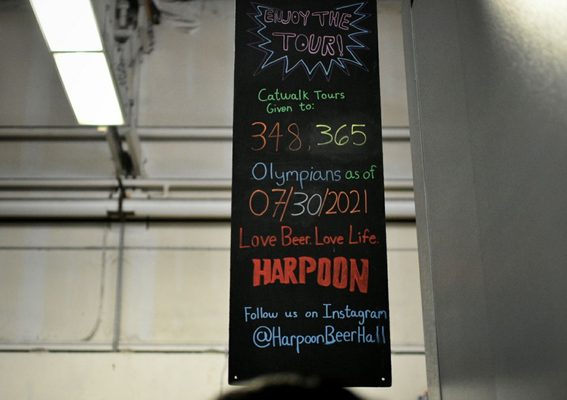 ENJOY THE
TOUR!
Catwalk Tours
Given to:
348,365
Olympians as of
07/30/2021
Love Beer. Love Life.
HARPOON
Follow us on Instagram
@HarpoonBeerHall